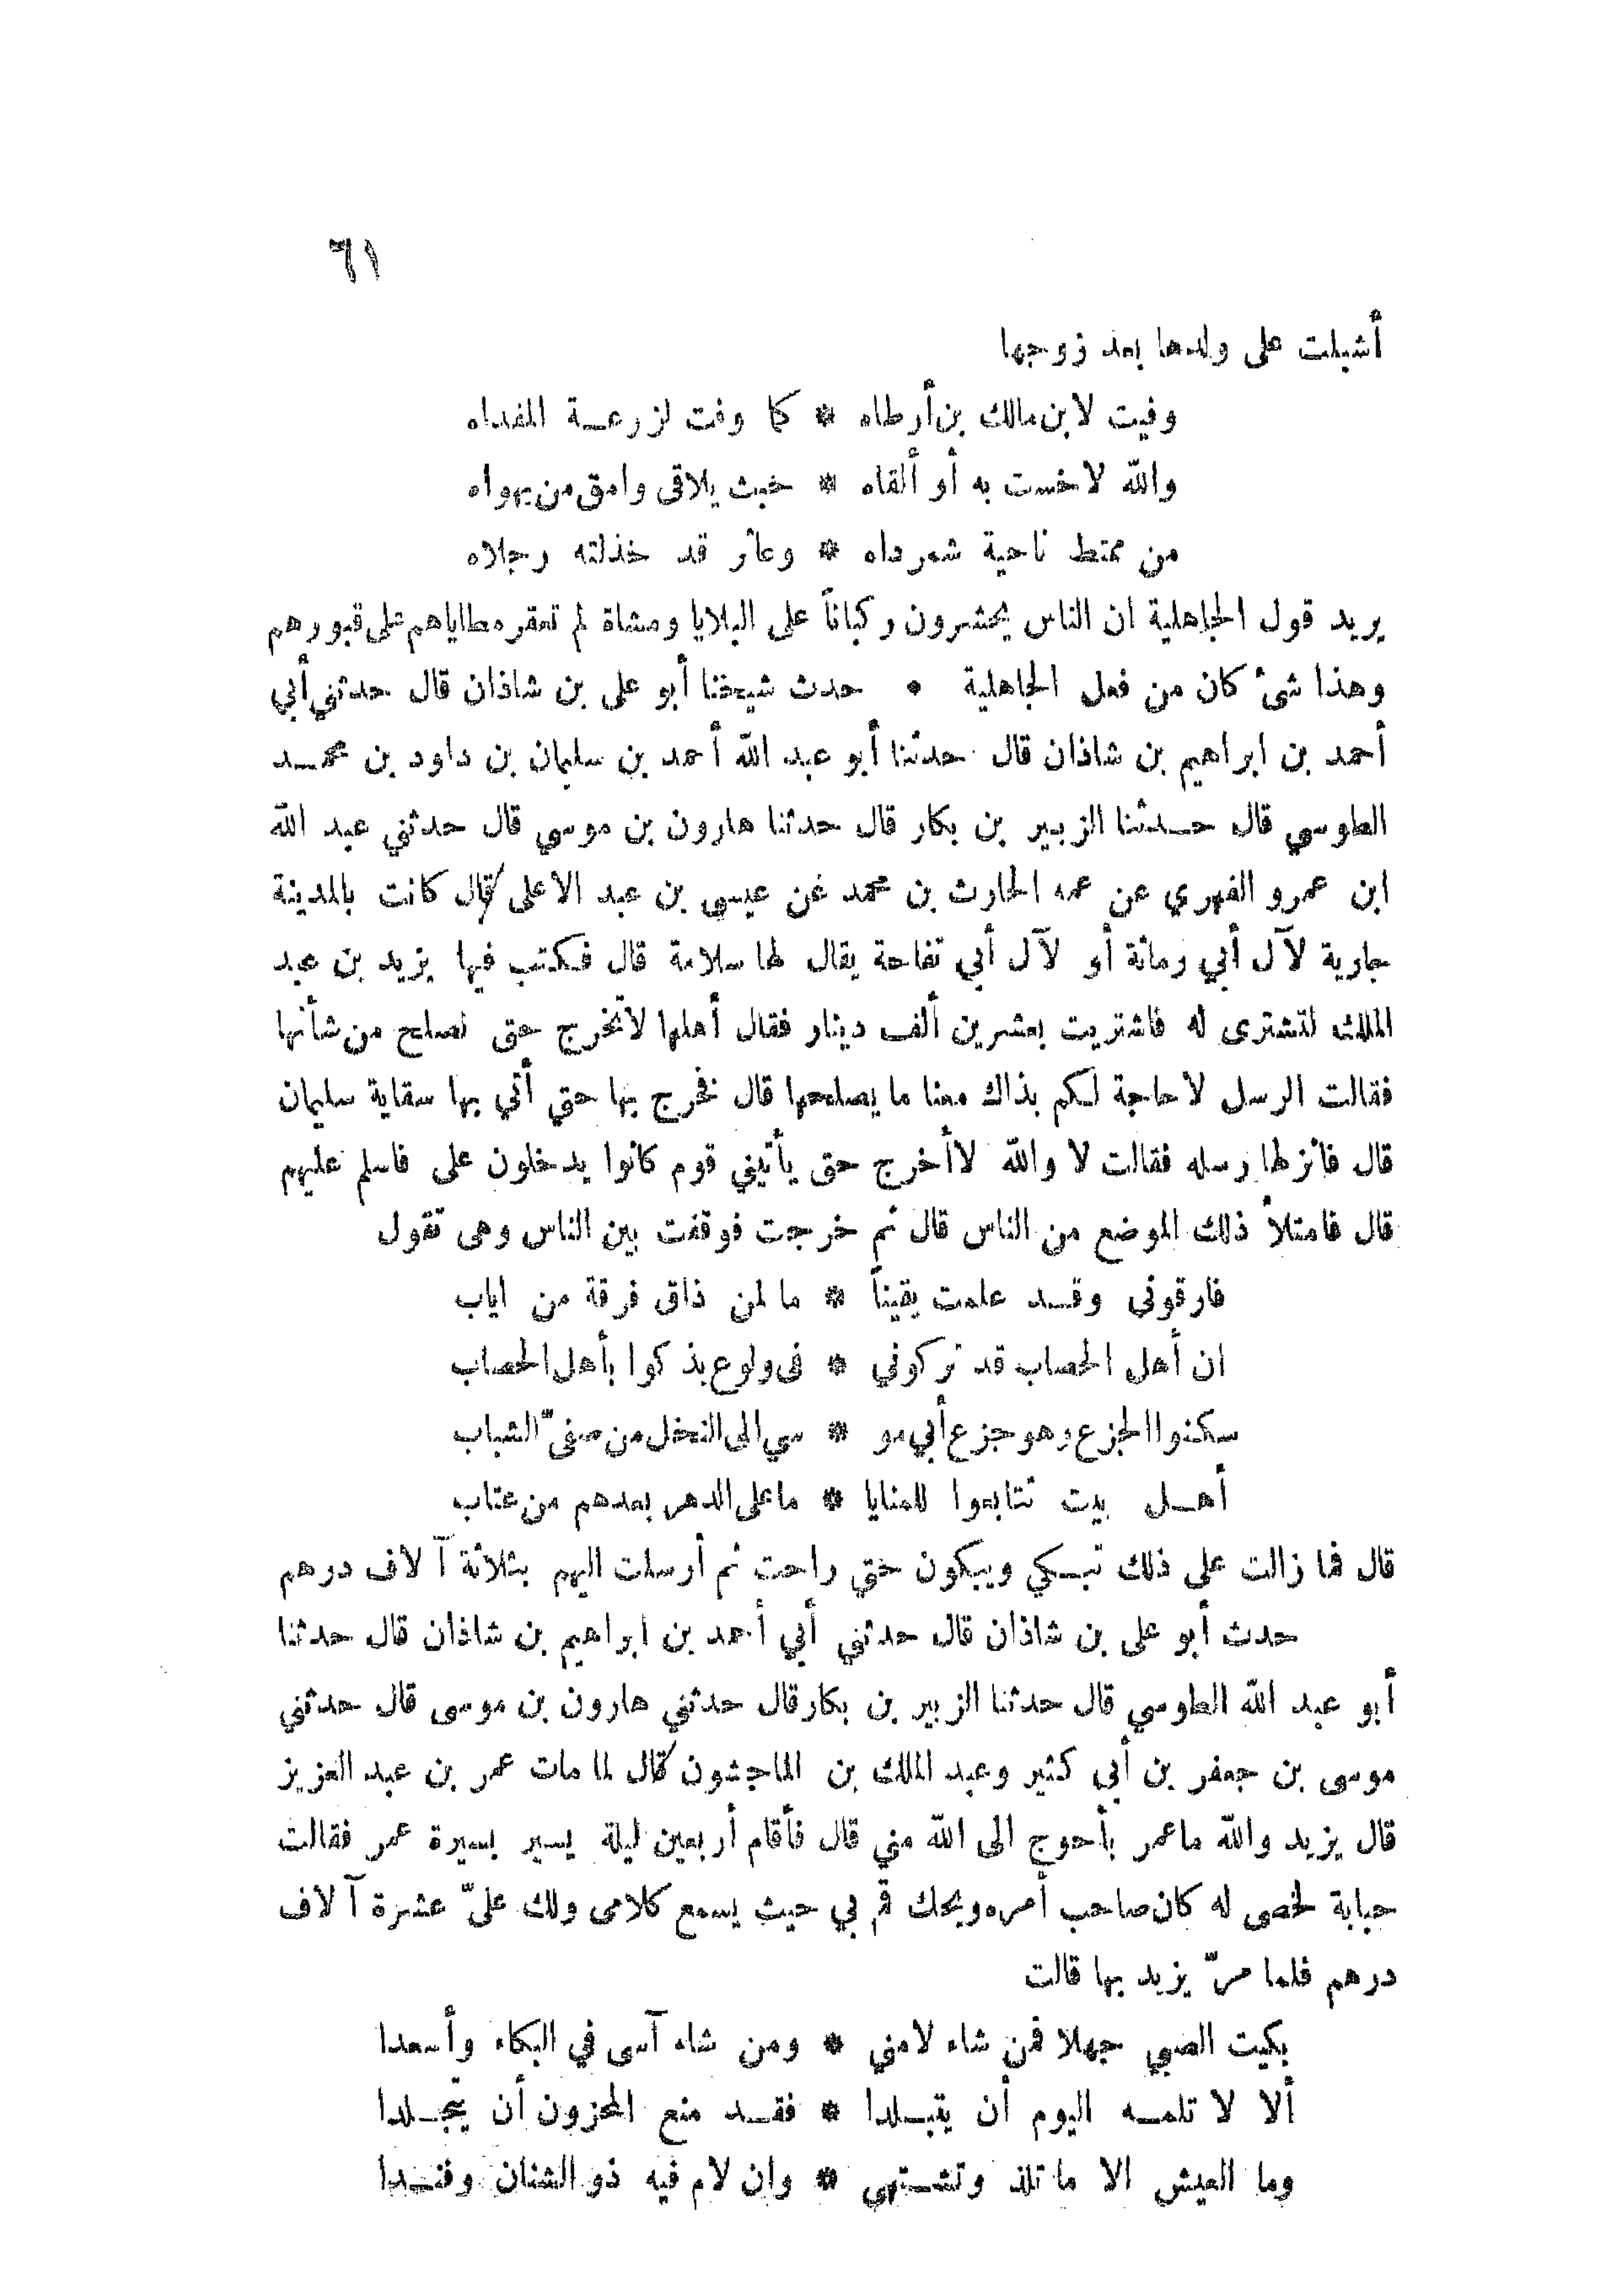 ٦١
أشبلت على ولدها بعد زوجها
وفيت لابن مالك بن أرطاه * كما وفت لزرعة المفداه
والله لا خست به أو ألقاه * حيث يلاقى وامق من يهواه
من ممتط ناحية شمرداه * وعاثر قد خذلته رجلاه
يريد قول الجاهلية ان الناس يحشرون ركباناً على البلايا ومشاة لم تعقر مطاياهم على قبورهم
وهذا شئ كان من فعل الجاهلية • حدث شيخنا أبو على بن شاذان قال حدثني أبي
أحمد بن ابراهيم بن شاذان قال حدثنا أبو عبد الله أحمد بن سليمان بن داود بن محمد
الطوسي قال حدثنا الزبير بن بكار قال حدثنا هارون بن موسي قال حدثني عبد الله
ابن عمرو الفهري عن عمه الحارث بن محمد عن عيسى بن عبد الاعلى قال كانت بالمدينة
جارية لآل أبي رمانة أو لآل أبي تفاحة يقال لها سلامة قال فكتب فيها يزيد بن عبد
الملك لتشترى له فاشتريت بعشرين ألف دينار فقال أهلها لا تخرج حتى نصلح من شأنها
فقالت الرسل لا حاجة لكم بذاك معنا ما يصلحها قال فخرج بها حتي أتي بها سقاية سليمان
قال فانزلها رسله فقالت لا والله لا أخرج حتى يأتيني قوم كانوا يدخلون على فاسلم عليهم
قال فامتلأ ذلك الموضع من الناس قال ثم خرجت فوقفت بين الناس وهى تقول
فارقونى وقد علمت يقيناً * ما لمن ذاق فرقة من اياب
ان أهل الحصاب قد تركوني * فى ولوع بذكوا بأهل الحصاب
سكنوا الجزع وهو جزع أبي مو * سي الى النخل من صفىّ الشباب
أهل بيت تتابعوا للمنايا * ما على الدهر بعدهم من عتاب
قال فما زالت على ذلك تبكي ويبكون حتي راحت ثم أرسلت اليهم بثلاثة آلاف درهم
حدث أبو على بن شاذان قال حدثني أبي أحمد بن ابراهيم بن شاذان قال حدثنا
أبو عبد الله الطوسي قال حدثنا الزبير بن بكار قال حدثني هارون بن موسى قال حدثني
موسى بن جعفر بن أبي كثير وعبد الملك بن الماجشون قال لما مات عمر بن عبد العزيز
قال يزيد والله ما عمر بأحوج الى الله مني قال فأقام أربعين ليلة يسير بسيرة عمر فقالت
حبابة لخصى له كان صاحب أمره ويحك قم بي حيث يسمع كلامى ولك علىّ عشرة آلاف
درهم فلما مرّ يزيد بها قالت
بكيت الصبي جهلا فمن شاء لامني * ومن شاء آسى في البكاء وأسعدا
ألا لا تلمه اليوم أن يتبلدا * فقد منع المحزون أن يتجلدا
وما العيش الا ما تلذ وتشتهي * وان لام فيه ذو الشنان وفندا